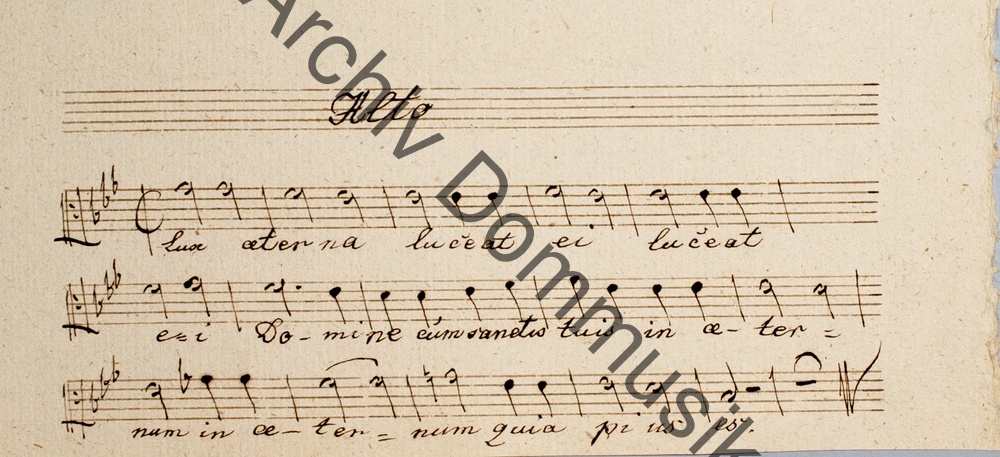 Alto
Lux æterna luceat ei luceat
e=i Do-mine cum sanctis tuis in æ-ter=
num in æ-ter=num quia pi us es.
Archiv Dommusik